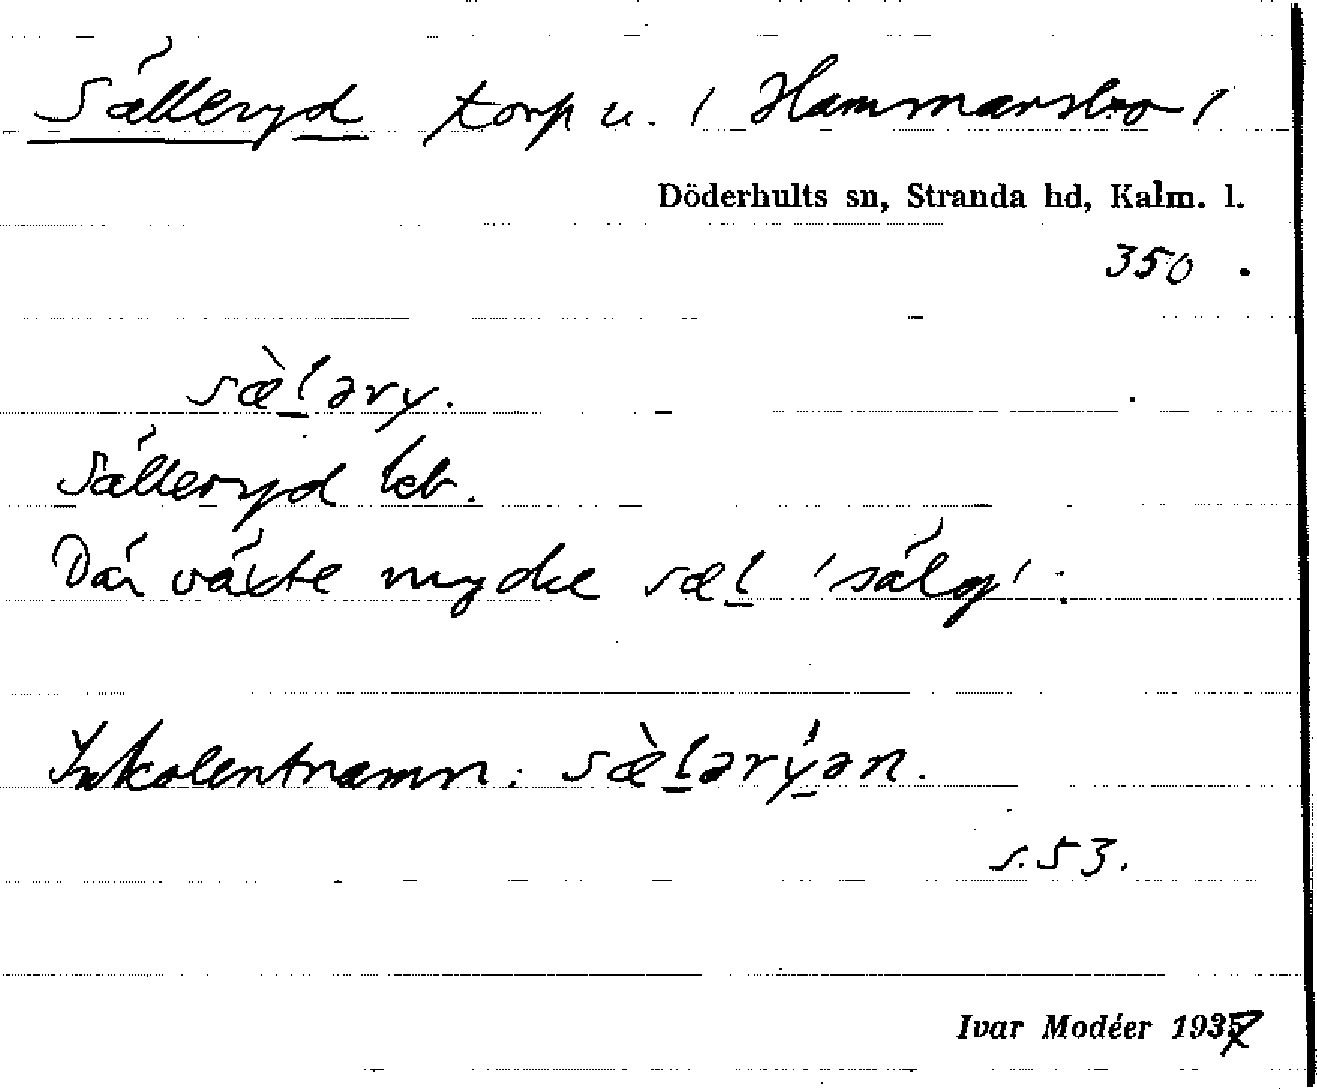 Sälleryd torp u. / Hammarsbo /
Döderhults sn, Stranda hd, Kalm. l.
350 .
sæ̀l̲əry.
Sälleryd leb.
Där växte mycke sæl̲ 'sälg'.
Inkolentnamn: sæ̀l̲ərý̲ən.
s. 53.
Ivar Modéer 1937